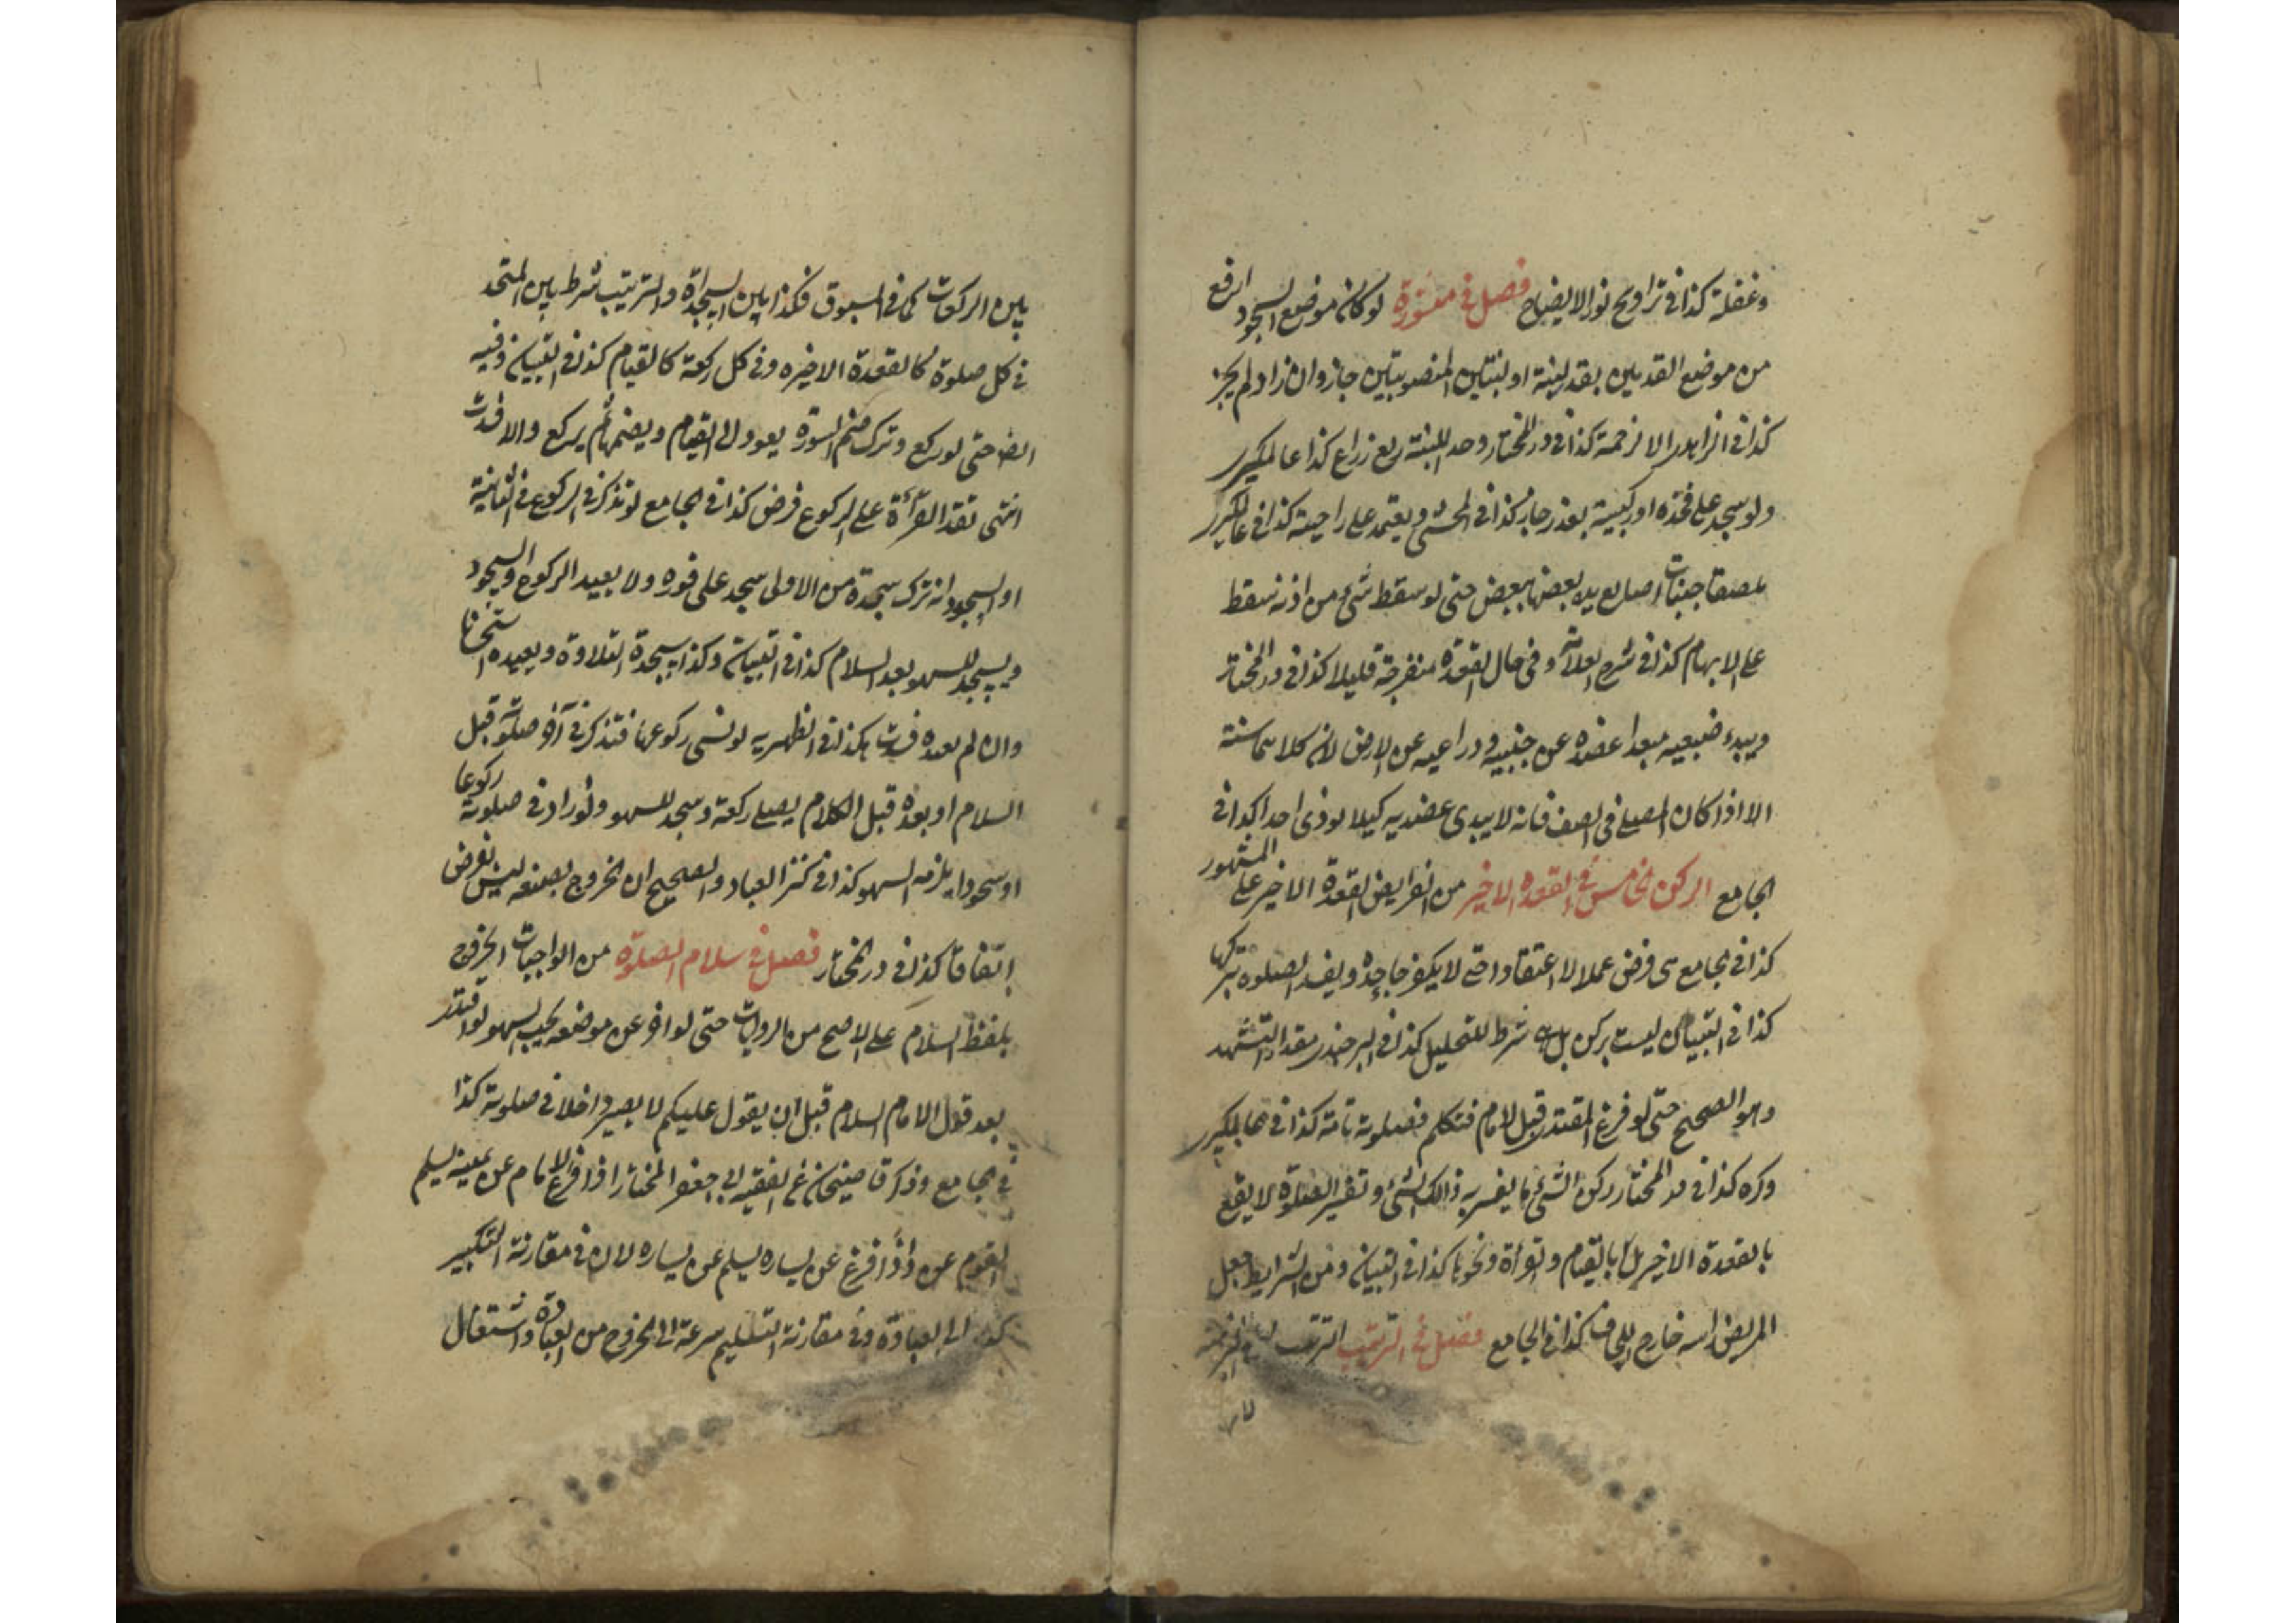 وغفلة كذا فی تراویح نور الایضاح فصل فی لو كان موضع السجود ارفع
من موضع القدمین بقدر لبنة او لبنتین المنصوبتین جاز وان زاد لم یجز
كذا فی الزاهدی الا لزحمة كذا فی در المختار وحد اللبنة ربع ذراع كذا عالمكیری
ولو سجد علی فخذه او ركبتیه بعذر جاز كذا فی المحشی ویعتمد علی راحیته كذا فی عالمكیری
ملصقا جنبات اصابع یدیه بعضها ببعض حتی لو سقط شیٔ من اذنه سقط
علی الابهام كذا فی شرح وفی حال القعدة منفرجة قلیلا كذا فی در المختار
ویبدء ضبعیه مبعدا عضده عن جنبیه وذراعیه عن الارض لان كلاهما سنة
الا اذا كان المصلی فی الصف فانه لا یبدی عضدیه كیلا یوذی احدا كذا فی
الجامع الركن الخامس فی القعده الاخیر من الفرایض القعدة الاخیر علی المشهور
كذا فی الجامع هی فرض عملا لا اعتقادا حتی لا یكفر جاحده ویفسد الصلوه بتركها
كذا فی التبیان لیست بركن بل هی شرط للتحلیل كذا فی البرجندی مقدار التشهد
وهو الصحیح حتی لو فرغ المقتدی قبل الامام فتكلم فصلوته تامة كذا فی عالمكیری
وكره كذا فی در المختار ركن الشیٔ ما یفسر به ذالك الشیٔ وتفسیر الصلوة لا یقع
بالقعدة الاخیر بل بالقیام والقرأة ونحوها كذا فی التبیان ومن الشرایط جعل
المریض راسه خارج اللحاف كذا فی الجامع فصل فی الترتیب الترتیب
بین الركعات كما فی المسبوق فكذا بین السجداة والترتیب شرط بین المتحد
فی كل صلوة كالقعدة الاخیره وفی كل ركعة كالقیام كذا فی التبیان وفیه
ایضا حتی لو ركع وترك ضم السورة یعود الی القیام ویضمها ثم یركع والا فسدت
انتهی تقد القرأة علی الركوع فرض كذا فی الجامع لو تذكر فی الركوع فی الثانیة
او السجود انه ترك سجدة من الاولی سجد علی فوره ولا یعید الركوع والسجود
ویسجد للسهو بعد السلام كذا فی التبیان وكذا سجدة التلاوة ویعیده استحسانا
وان لم یعده فسدت هكذا فی الظهیریه لو نسی ركوعها فتذكر فی آخر صلوته قبل
السلام او بعده قبل الكلام یصلی ركعة وسجد للسهو ولو زاد فی صلوته ركوعا
او سجودا یلزمه السهو كذا فی كنز العباد والصحیح ان الخروج بصنعه لیس بفرض
اتفاقا كذا فی در المختار فصل فی سلام الصلوة من الواجبات الخروج
بلفظ السلام علی الاصح من الروایات حتی لو اخر عن موضعه یجب السهو لو اقتدی
بعد قول الامام السلام قبل ان یقول علیكم لا یصیر داخلا فی صلوته كذا
فی الجامع وذكر قاضیخان عن الفقیه ابی جعفر المختار اذا فرغ الامام عن یمینه یسلم
القوم عن واذا فرغ عن یساره یسلم عن یساره لان فی مقارنة التكبیر
الی العبادة وفی مقارنة التسلیم سرعة الی الخروج من العبادة واشتغال